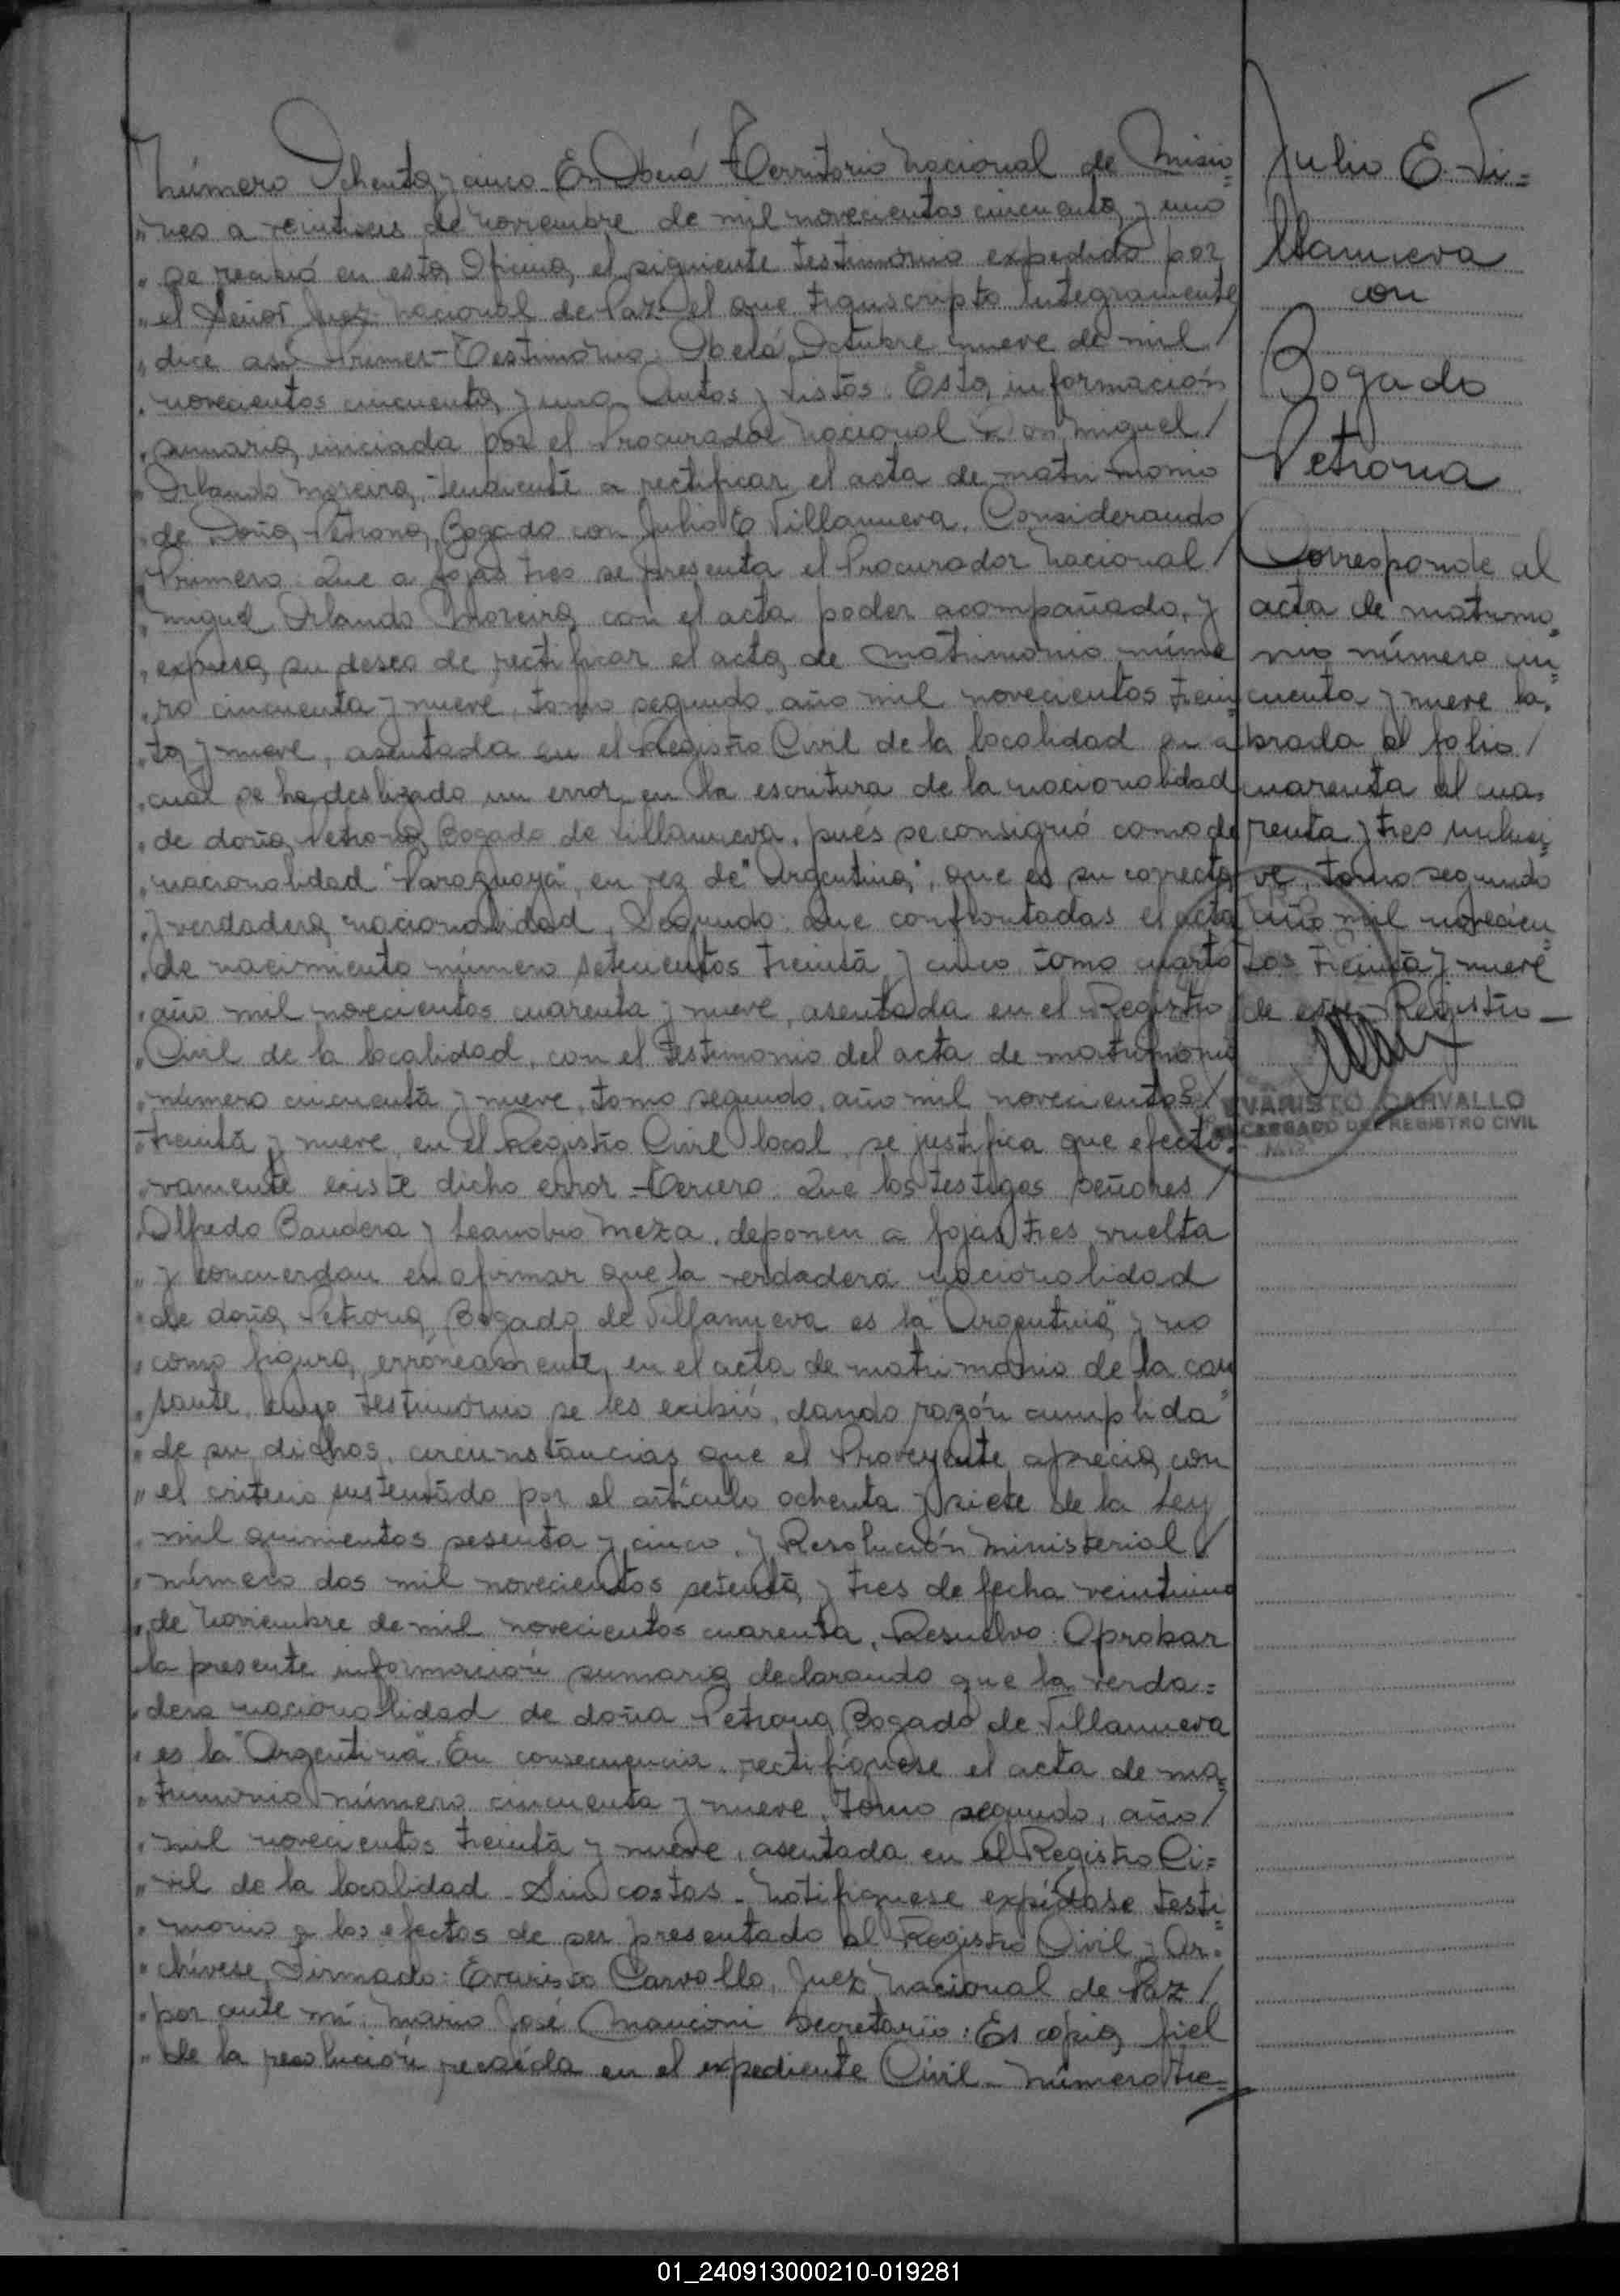 Número Ochenta y cinco. En Oberá Territorio Nacional de Misio=
"nes a veintiseis de noviembre de mil novecientos cincuenta y uno
"se recibió en esta Oficina, el siguiente testimonio expedido por
"el Señor Juez Nacional de Paz el que transcripto íntegramente
"dice así: Primer-Testimonio: Oberá, Octubre nueve de mil /
"novecientos cincuenta y uno. Autos y Vistos: Esta información
"sumaria, iniciada por el Procurador Nacional Don Miguel /
"Orlando Moreira, tendiente a rectificar el acta de matrimonio
"de Doña Petrona Bogado con Julio E Villanueva. Considerando
"Primero: Que a fojas tres se presenta el Procurador Nacional /
"Miguel Orlando Moreira con el acta poder acompañado, y
"expresa su deseo de rectificar el acta de matrimonio núme
"ro cincuenta y nueve, tomo segundo, año mil novecientos trein=
"ta y nueve, asentada en el Registro Civil de la localidad en a
"cual se ha deslizado un error en la escritura de la nacionalidad
"de doña Petrona Bogado de Villanueva, pués se consignó como de
"nacionalidad "Paraguaya", en vez de "Argentina", que es su correcta
"y verdadera nacionalidad. Segundo: Que confrontadas el acta
"de nacimiento número setecientos treinta y cinco, tomo cuarto
"año mil novecientos cuarenta y nueve, asentada en el Registro
"Civil de la localidad, con el testimonio del acta de matrimonio
"número cincuenta y nueve, tomo segundo, año mil novecientos /
"treinta y nueve, en el Registro Civil local, se justifica que efecti=
"vamente existe dicho error. Tercero: Que los testigos señores /
"Alfredo Bandera y Leandro Meza, deponen a fojas tres vuelta
"y concuerdan en afirmar que la verdadera nacionalidad
"de doña Petrona Bogado de Villanueva es la "Argentina" y no
"como figura, erróneamente, en el acta de matrimonio de la cau
"sante, cuyo testimonio se les exibió, dando razón cumplida
"de su dichos, circunstancias que el Proveyente aprecia con
"el criterio sustentado por el artículo ochenta y siete de la Ley
"mil quinientos sesenta y cinco, y Resolución Ministerial /
"número dos mil novecientos setenta y tres de fecha veintiuno
"de Noviembre de mil novecientos cuarenta, Resuelvo: Aprobar
"la presente información sumaria declarando que la verda=
"dera nacionalidad de doña Petrona Bogado de Villanueva
"es la "Argentina". En consecuencia, rectifíquese el acta de ma=
"trimonio número cincuenta y nueve, tomo segundo, año /
"mil novecientos treinta y nueve, asentada en el Registro Ci=
"vil de la localidad. Sin costas. Notifiquese expídase testi=
"monio a los efectos de ser presentado al Registro Civil y Ar=
"chívese. Firmado: Evaristo Carvallo, Juez Nacional de Paz /
"por ante mí. Mario José Manconi Secretario: Es copia fiel
"de la resolución recaída en el expediente Civil- número tre=
Julio E. Vi=
llanueva
con
Bogado
Petrona
Corresponde al
acta de matrimo=
nio número cin=
cuenta y nueve la=
brada al folio /
cuarenta al cua=
renta y tres inclusi=
ve, tomo segundo
año mil novecien=
tos treinta y nueve
de este Registro —
EVARISTO CARVALLO
ENCARGADO DEL REGISTRO CIVIL
01_240913000210-019281